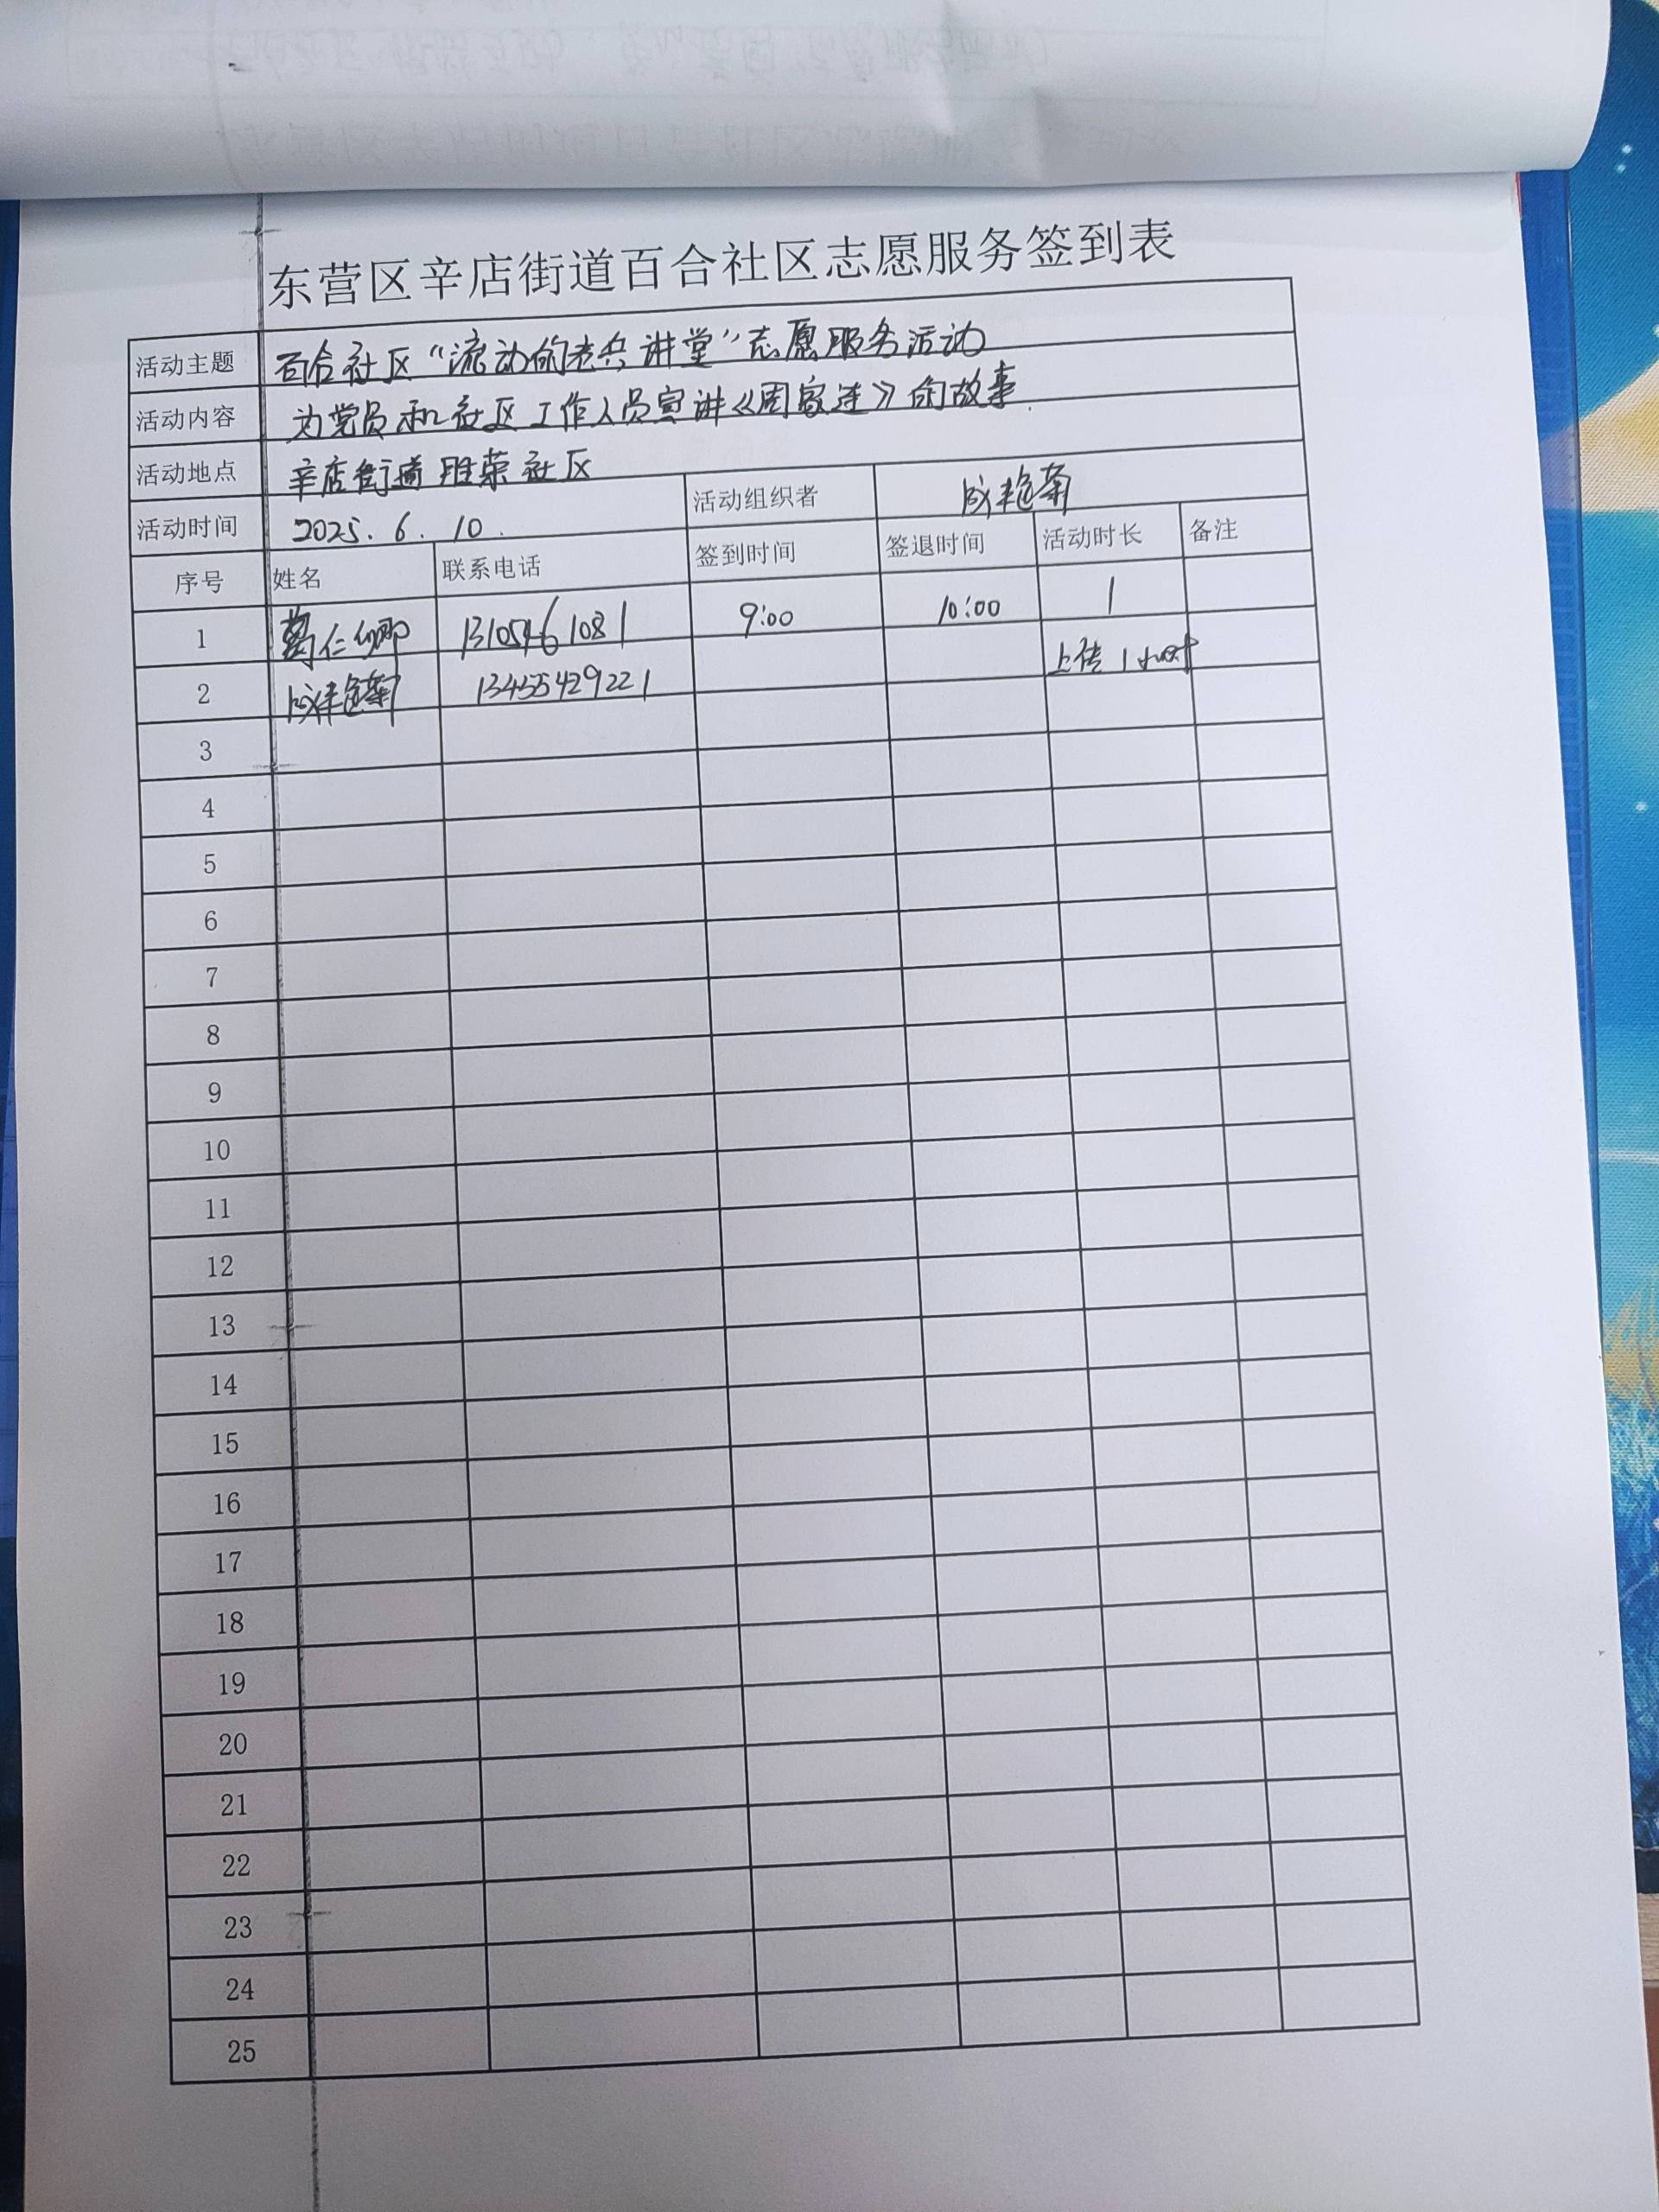 东营区辛店街道百合社区志愿服务签到表
活动主题 百合社区“流动的老兵讲堂”志愿服务活动
活动内容 为党员和社区工作人员宣讲《周家连》的故事.
活动地点 辛店街道胜荣社区
活动时间 2025.6.10. 活动组织者 成艳菊
序号 姓名 联系电话 签到时间 签退时间 活动时长 备注
1 葛仁卿 9:00 10:00 1
2 成艳菊 13455429221 上传1小时
3
4
5
6
7
8
9
10
11
12
13
14
15
16
17
18
19
20
21
22
23
24
25